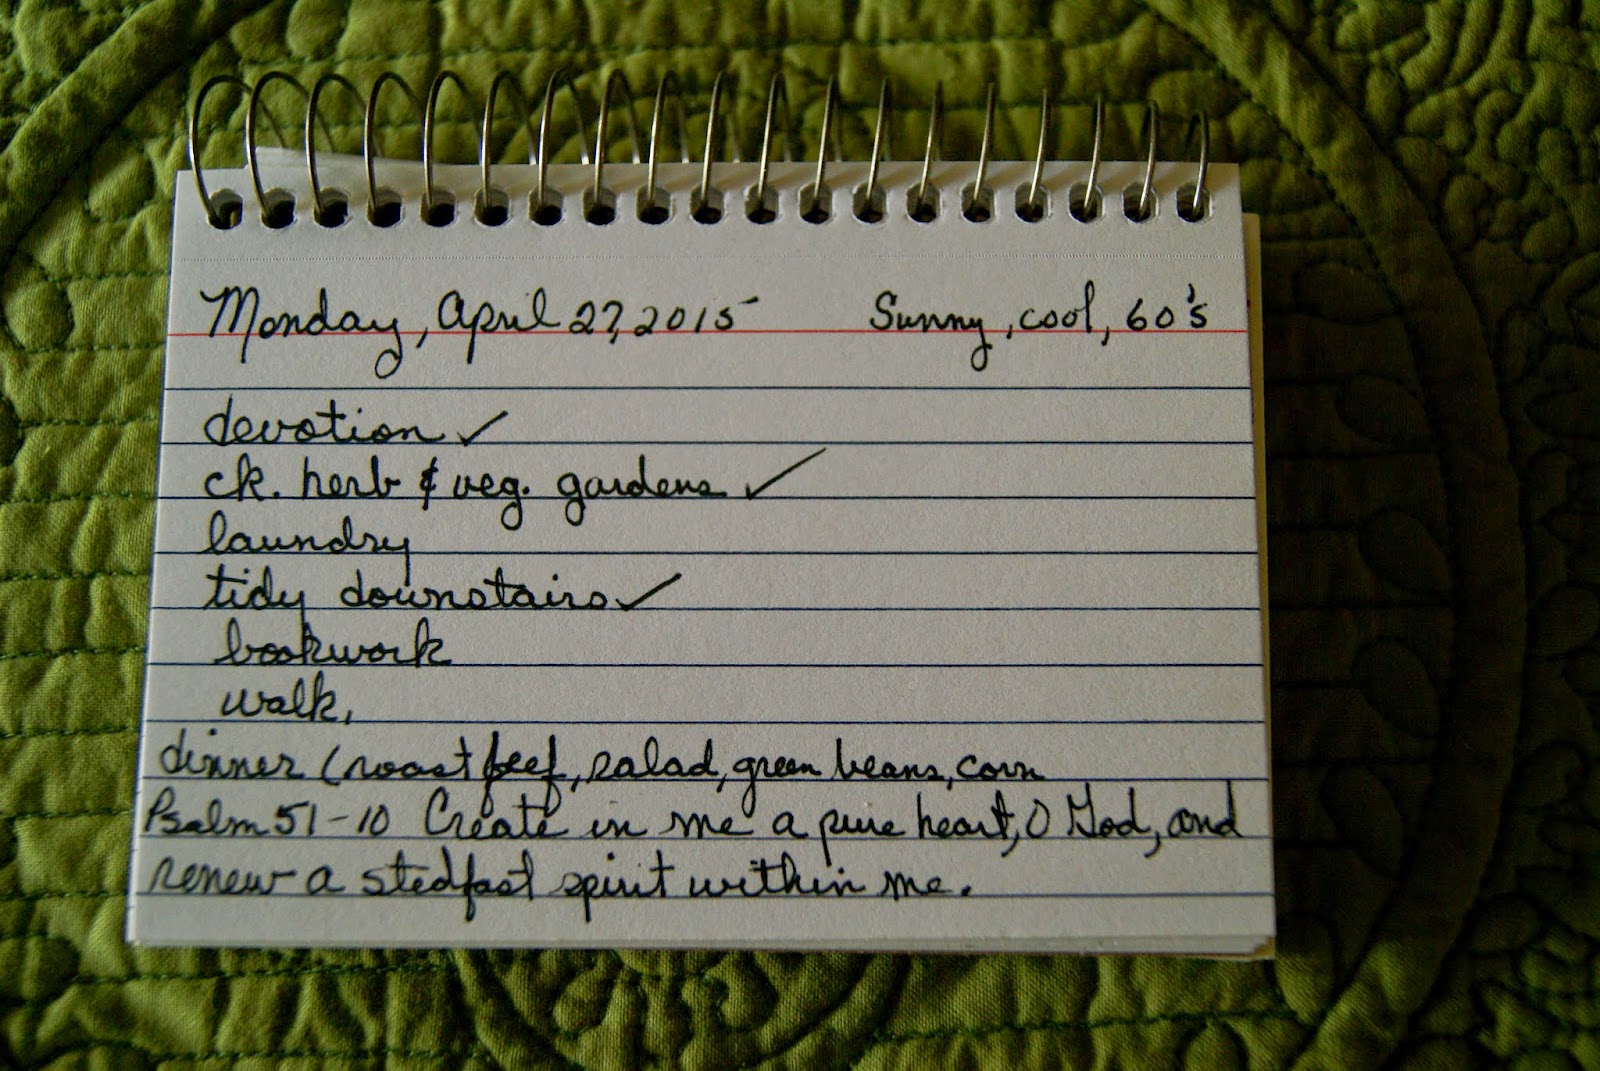 Monday, April 27, 2015 Sunny, cool, 60's
devotion ✓
ck. herb & veg. gardens ✓
laundry
tidy downstairs ✓
bookwork
walk,
dinner (roast beef, salad, green beans, corn
Psalm 51-10 Create in me a pure heart, O God, and
renew a stedfast spirit within me.